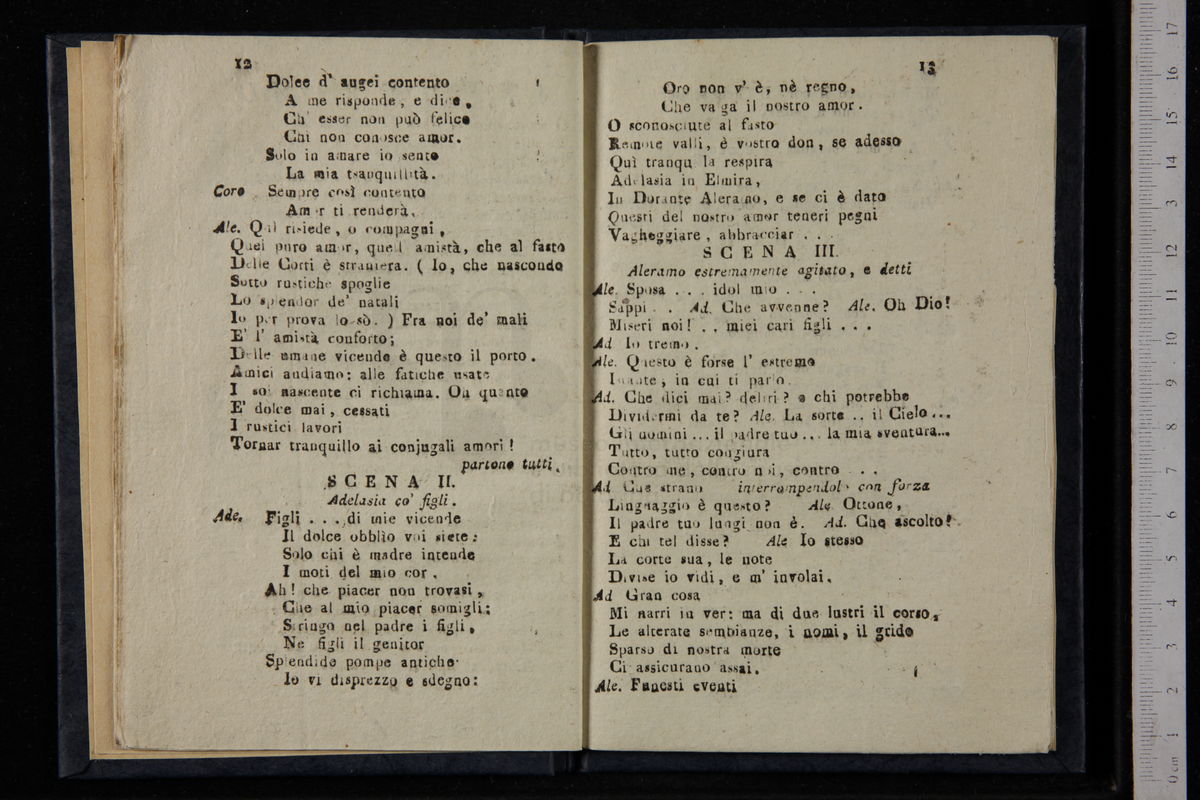 12
Dolce d' augei contento
A me risponde, e dice,
Ch' esser non può felice
Chi non conosce amor.
Solo in amare io sento
La mia tsanquillità.
Coro Sempre così contento
Amor ti renderà.
Ale. Quì risiede, o compagni,
Quel puro amor, quell amistà, che al fasto
Delle Corti è straniera. ( Io, che nascondo
Sotto rustiche spoglie
Lo splendor de' natali
Io per prova lo sò. ) Fra noi de' mali
E' l' amistà conforto;
Delle umane vicende è questo il porto.
Amici andiamo: alle fatiche usate
I sol nascente ci richiama. Oh quanto
E' dolce mai, cessati
I rustici lavori
Tornar tranquillo ai conjugali amori!
partono tutti.
SCENA II.
Adelasia co' figli.
Ade. Figli . . . di mie vicende
Il dolce obblìo voi siete:
Solo chi è madre intende
I moti del mio cor.
Ah! che piacer non trovasi,
Che al mio piacer somigli;
Stringo nel padre i figli,
Ne figli il genitor
Splendide pompe antiche
Io vi disprezzo e sdegno:
13
Oro non v' è, nè regno,
Che va ga il nostro amor.
O sconosciute al fasto
Remote valli, è vostro don, se adesso
Quì tranqu la respira
Adelasia in Elmira,
In Durante Aleramo, e se ci è dato
Questi del nostro amor teneri pegni
Vagheggiare, abbracciar . . .
SCENA III.
Aleramo estremamente agitato, e detti
Ale. Sposa . . . idol mio . . .
Sappi . . Ad. Che avvenne? Ale. Oh Dio!
Miseri noi! . . miei cari figli . . .
Ad Io tremo.
Ale. Questo è forse l' estremo
Istante, in cui ti parlo.
Ad. Che dici mai? deliri? e chi potrebbe
Dividermi da te? Ale. La sorte .. il Cielo...
Gli uomini ... il padre tuo ... la mia sventura...
Tutto, tutto congiura
Contro me, contro noi, contro . . .
Ad Che strano interrompendolo con forza
Linguaggio è questo? Ale Ottone,
Il padre tuo lungi non è. Ad. Che ascolto!
E chi tel disse? Ale Io stesso
La corte sua, le note
Divise io vidi, e m' involai.
Ad Gran cosa
Mi narri in ver: ma di due lustri il corso,
Le alterate sembianze, i nomi, il grido
Sparso di nostra morte
Ci assicurano assai.
Ale. Funesti eventi